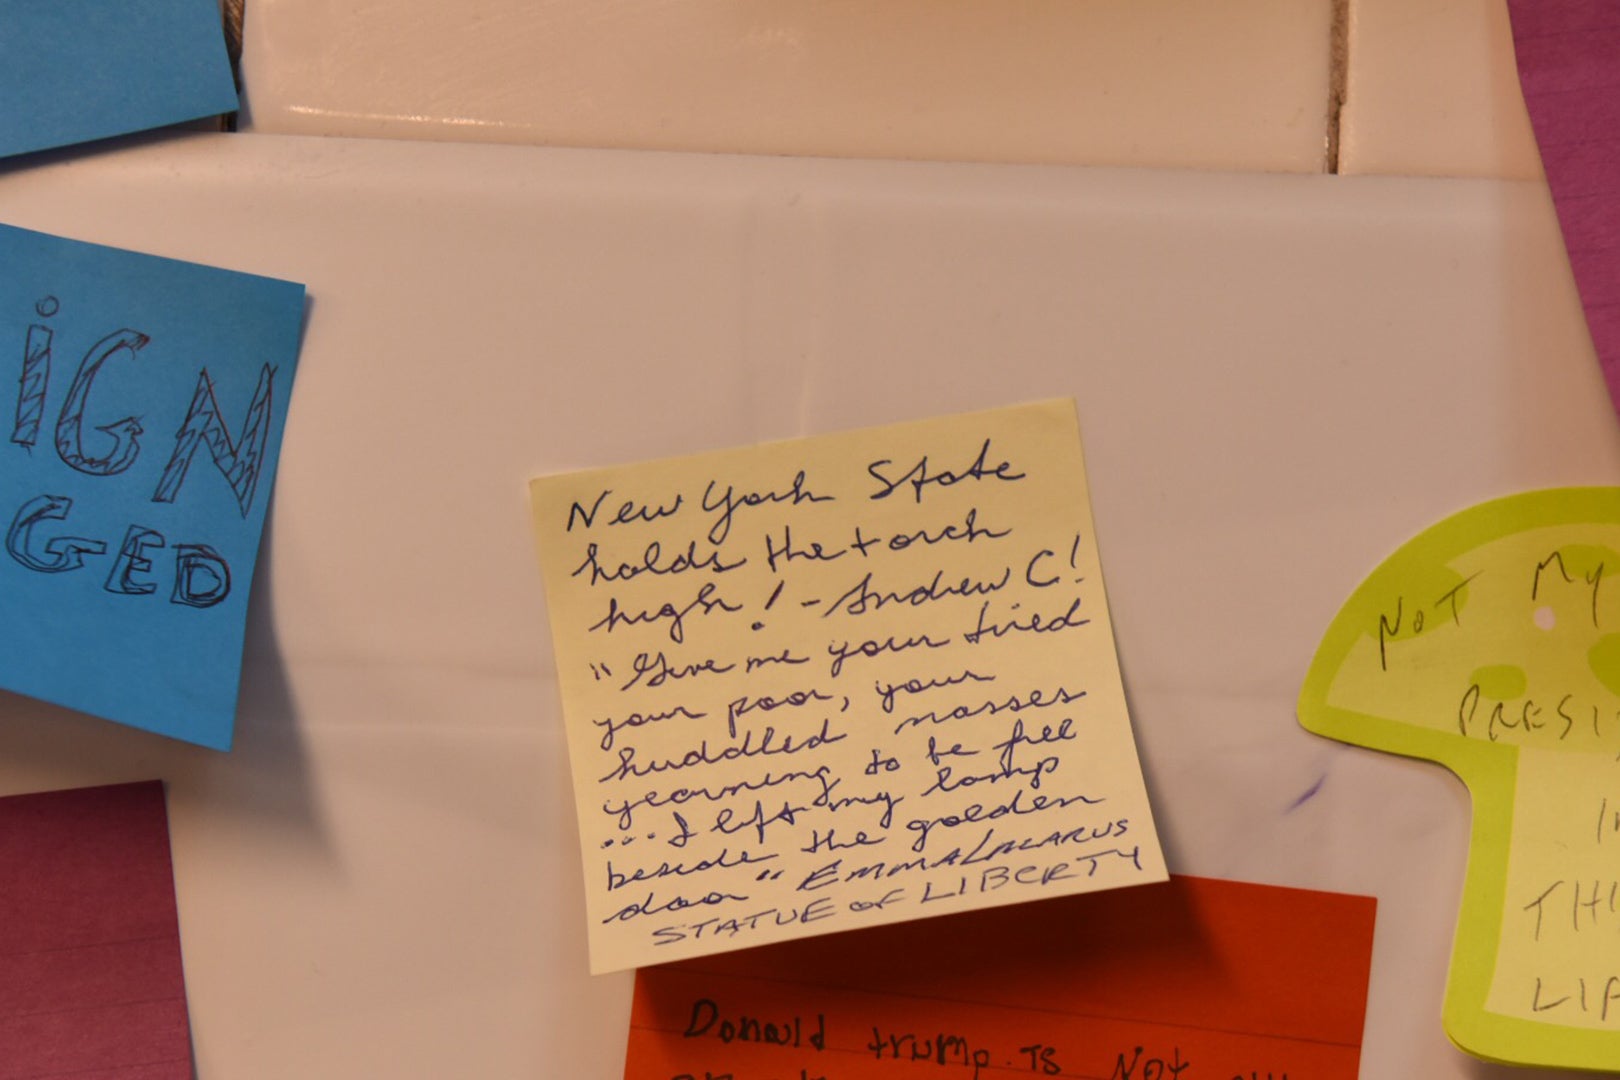 iGN
GED
New York State
holds the torch
high! - Andrew C!
"Give me your tired
your poor, your
huddled masses
yearning to be free
...I lift my lamp
beside the golden
door" EMMA LAZARUS
STATUE OF LIBERTY
Donald trump. Is Not
NOT My
PRESI
IN
THI
LIF